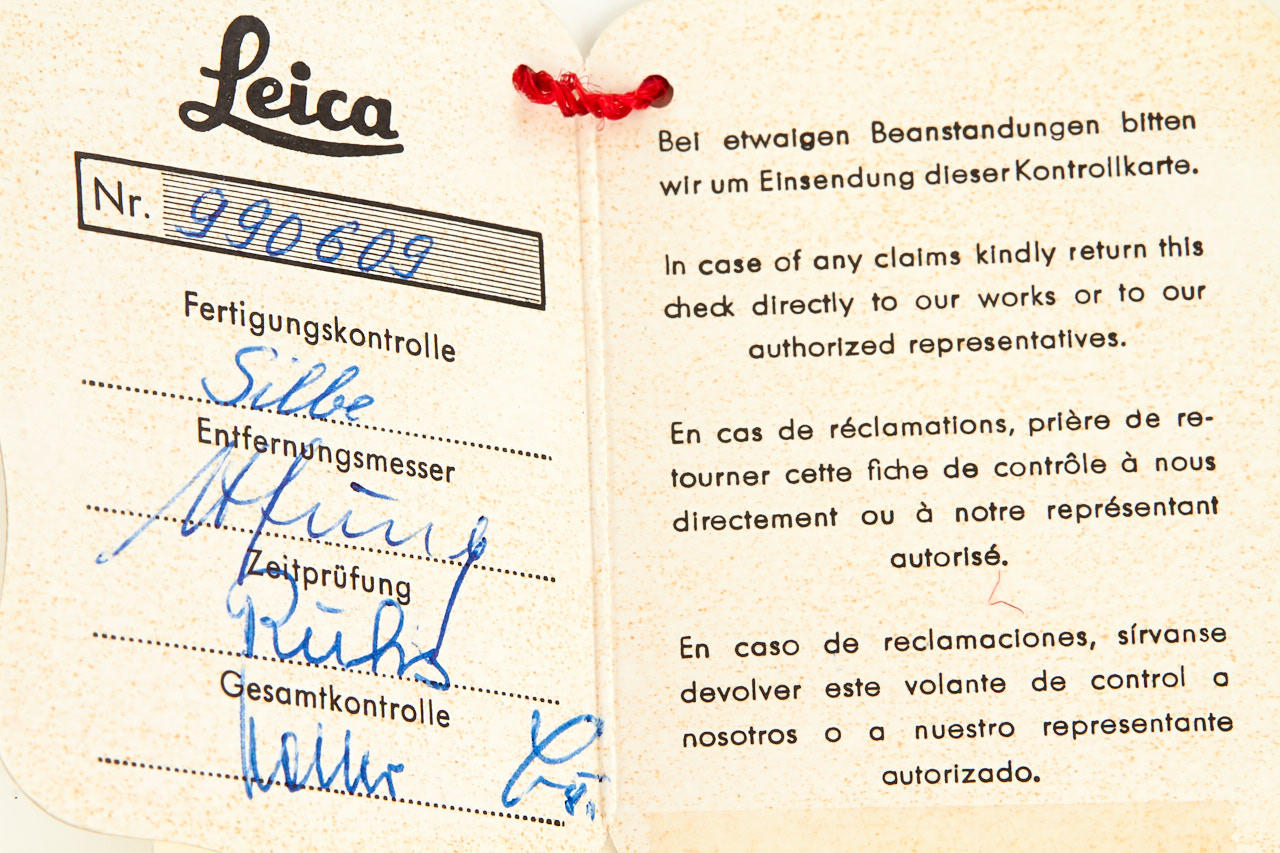 Leica
Nr. 990609
Fertigungskontrolle
Silbe
Entfernungsmesser
Zeitprüfung
Ruhs
Gesamtkontrolle
Bei etwaigen Beanstandungen bitten
wir um Einsendung dieser Kontrollkarte.
In case of any claims kindly return this
check directly to our works or to our
authorized representatives.
En cas de réclamations, prière de re-
tourner cette fiche de contrôle à nous
directement ou à notre représentant
autorisé.
En caso de reclamaciones, sírvanse
devolver este volante de control a
nosotros o a nuestro representante
autorizado.